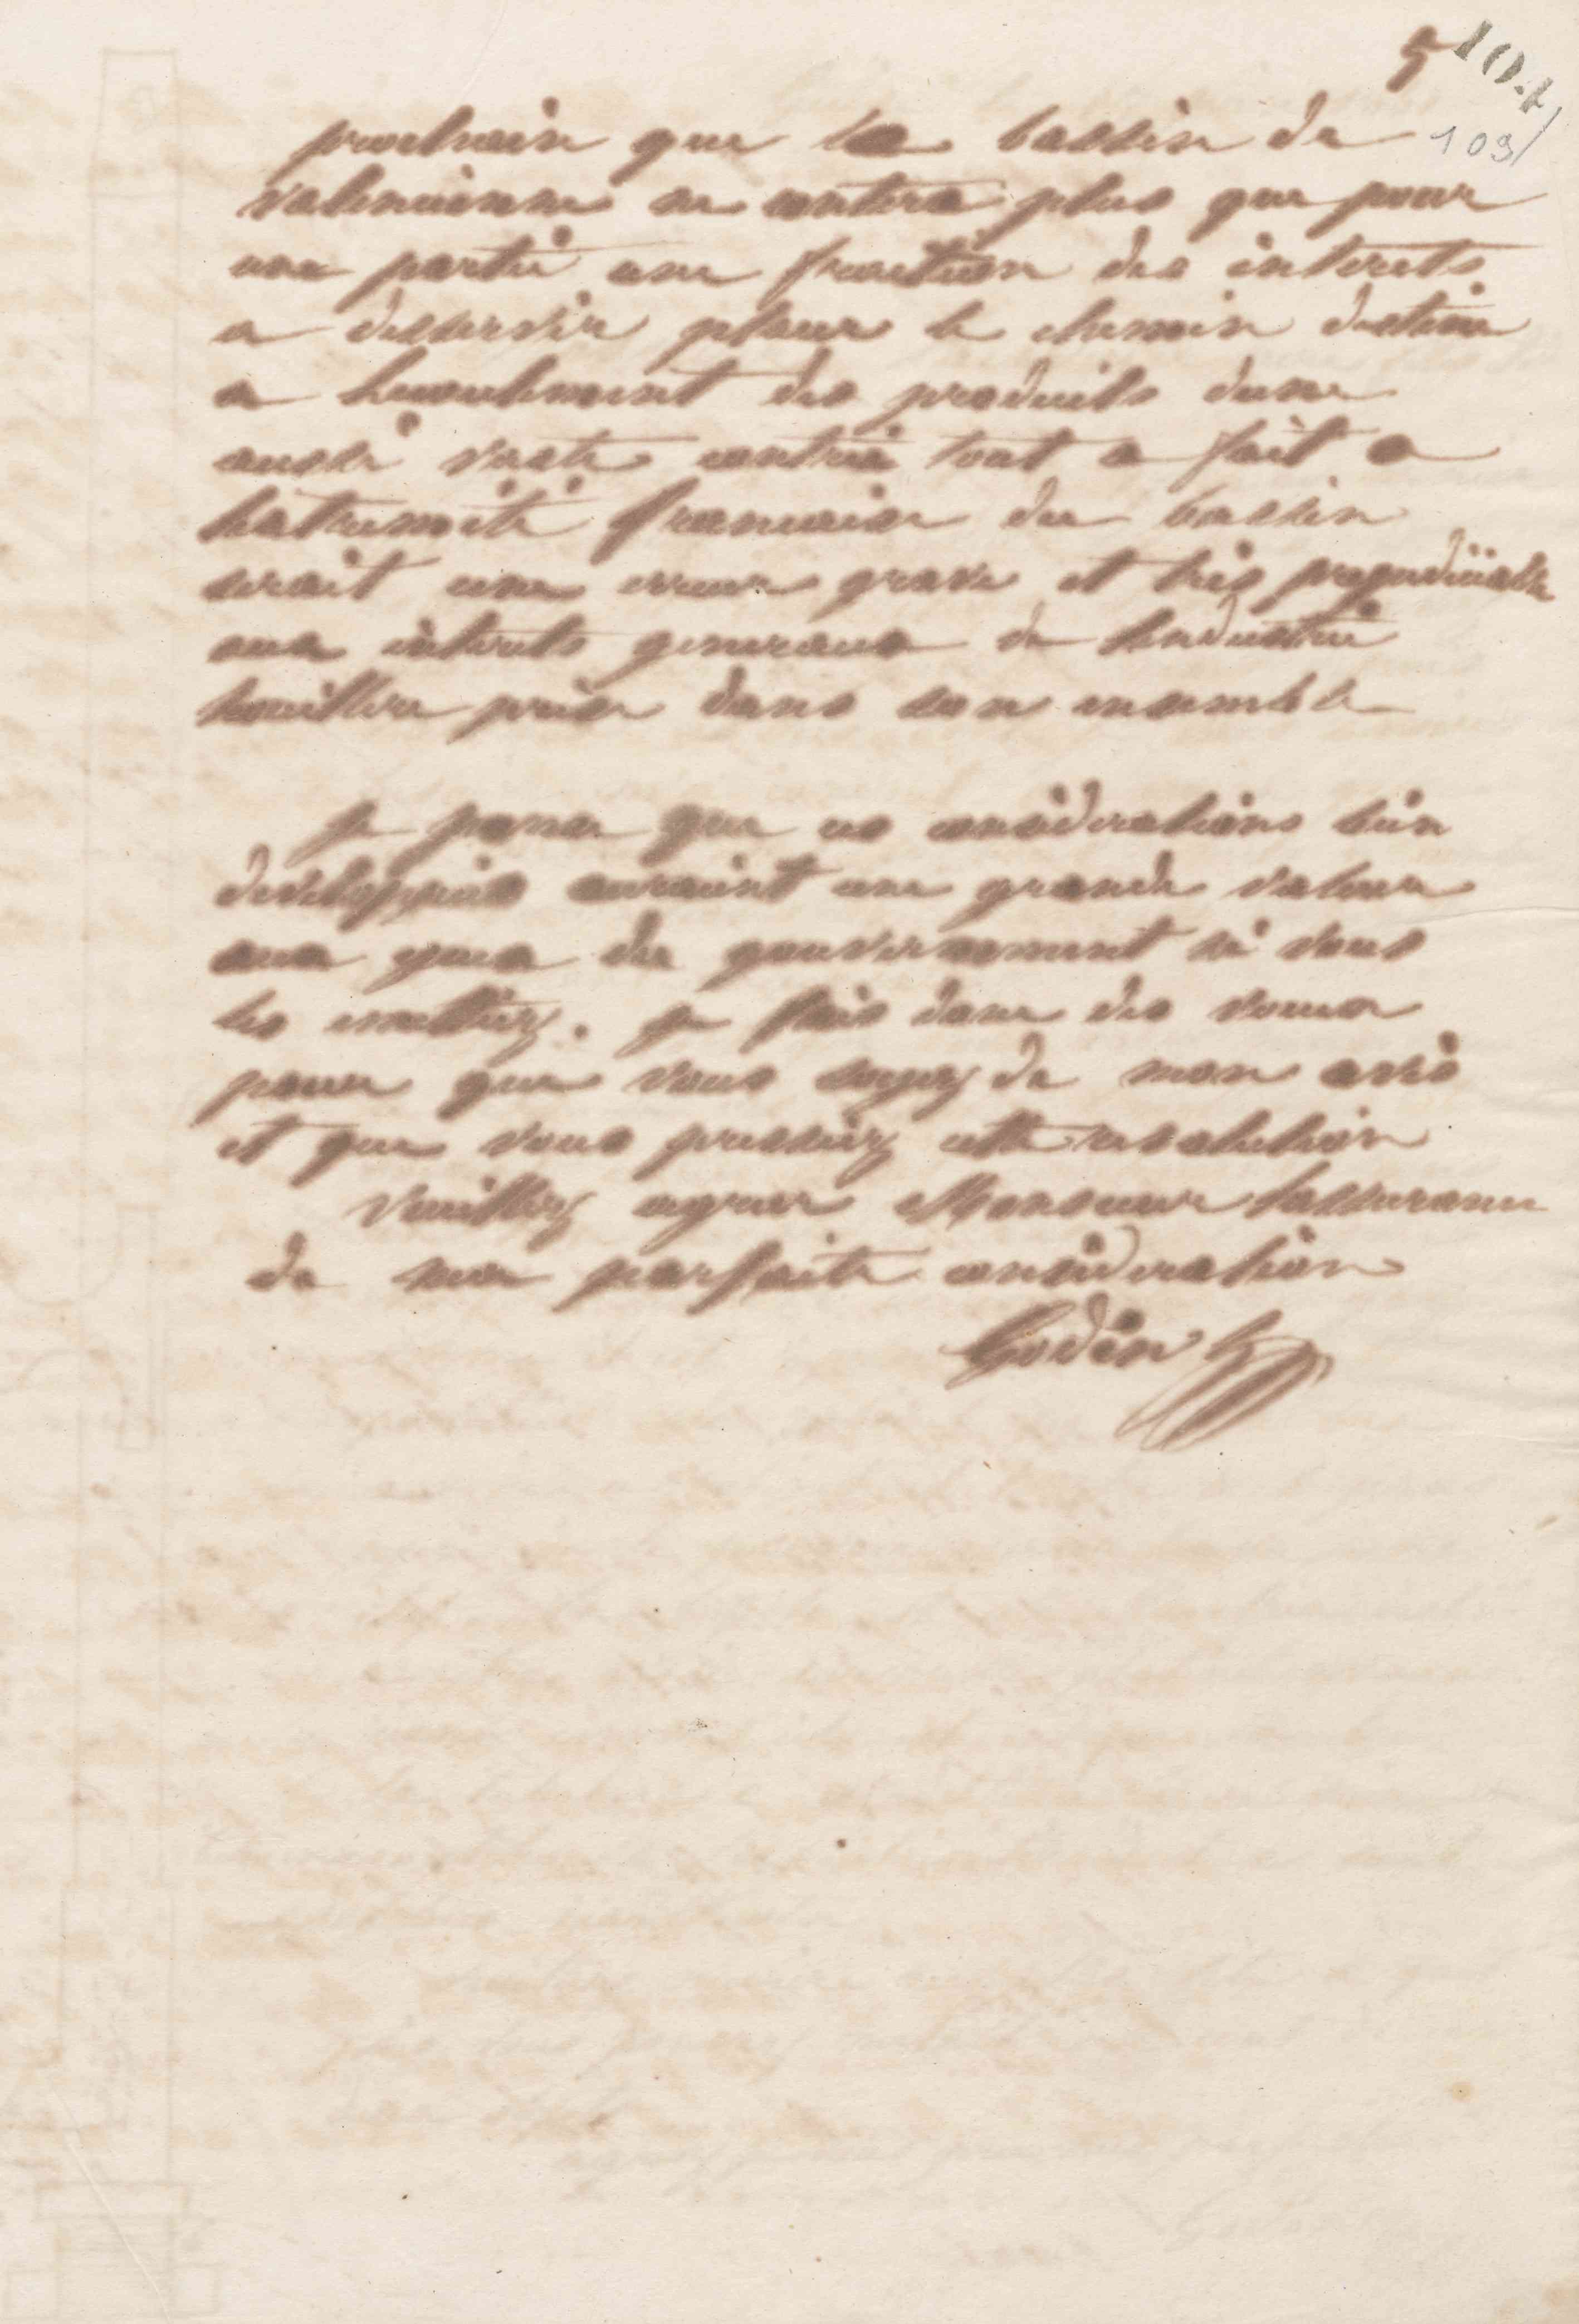 5
104
109
prochain que le bassin de
valenciennes ne contera plus que pour
une partie une fraction des interets
a desservir placer le chemin destine
a lecoulement des produits dune
aussi vaste contrée tout a fait a
lextremité francaise du bassin
serait une erreur grave et très prejudiciable
aux interets generaux de lindustrie
houillere prise dans son ensemble
je pense que ces considerations bien
developpées auraient une grande valeur
aux yeux du gouvernement si vous
les emettiez. je fais donc des voeux
pour que vous soyez de mon avis
et que vous pressiez cette resolution
Veuillez agreer Monsieur lassurance
de ma parfaite consideration
Godin